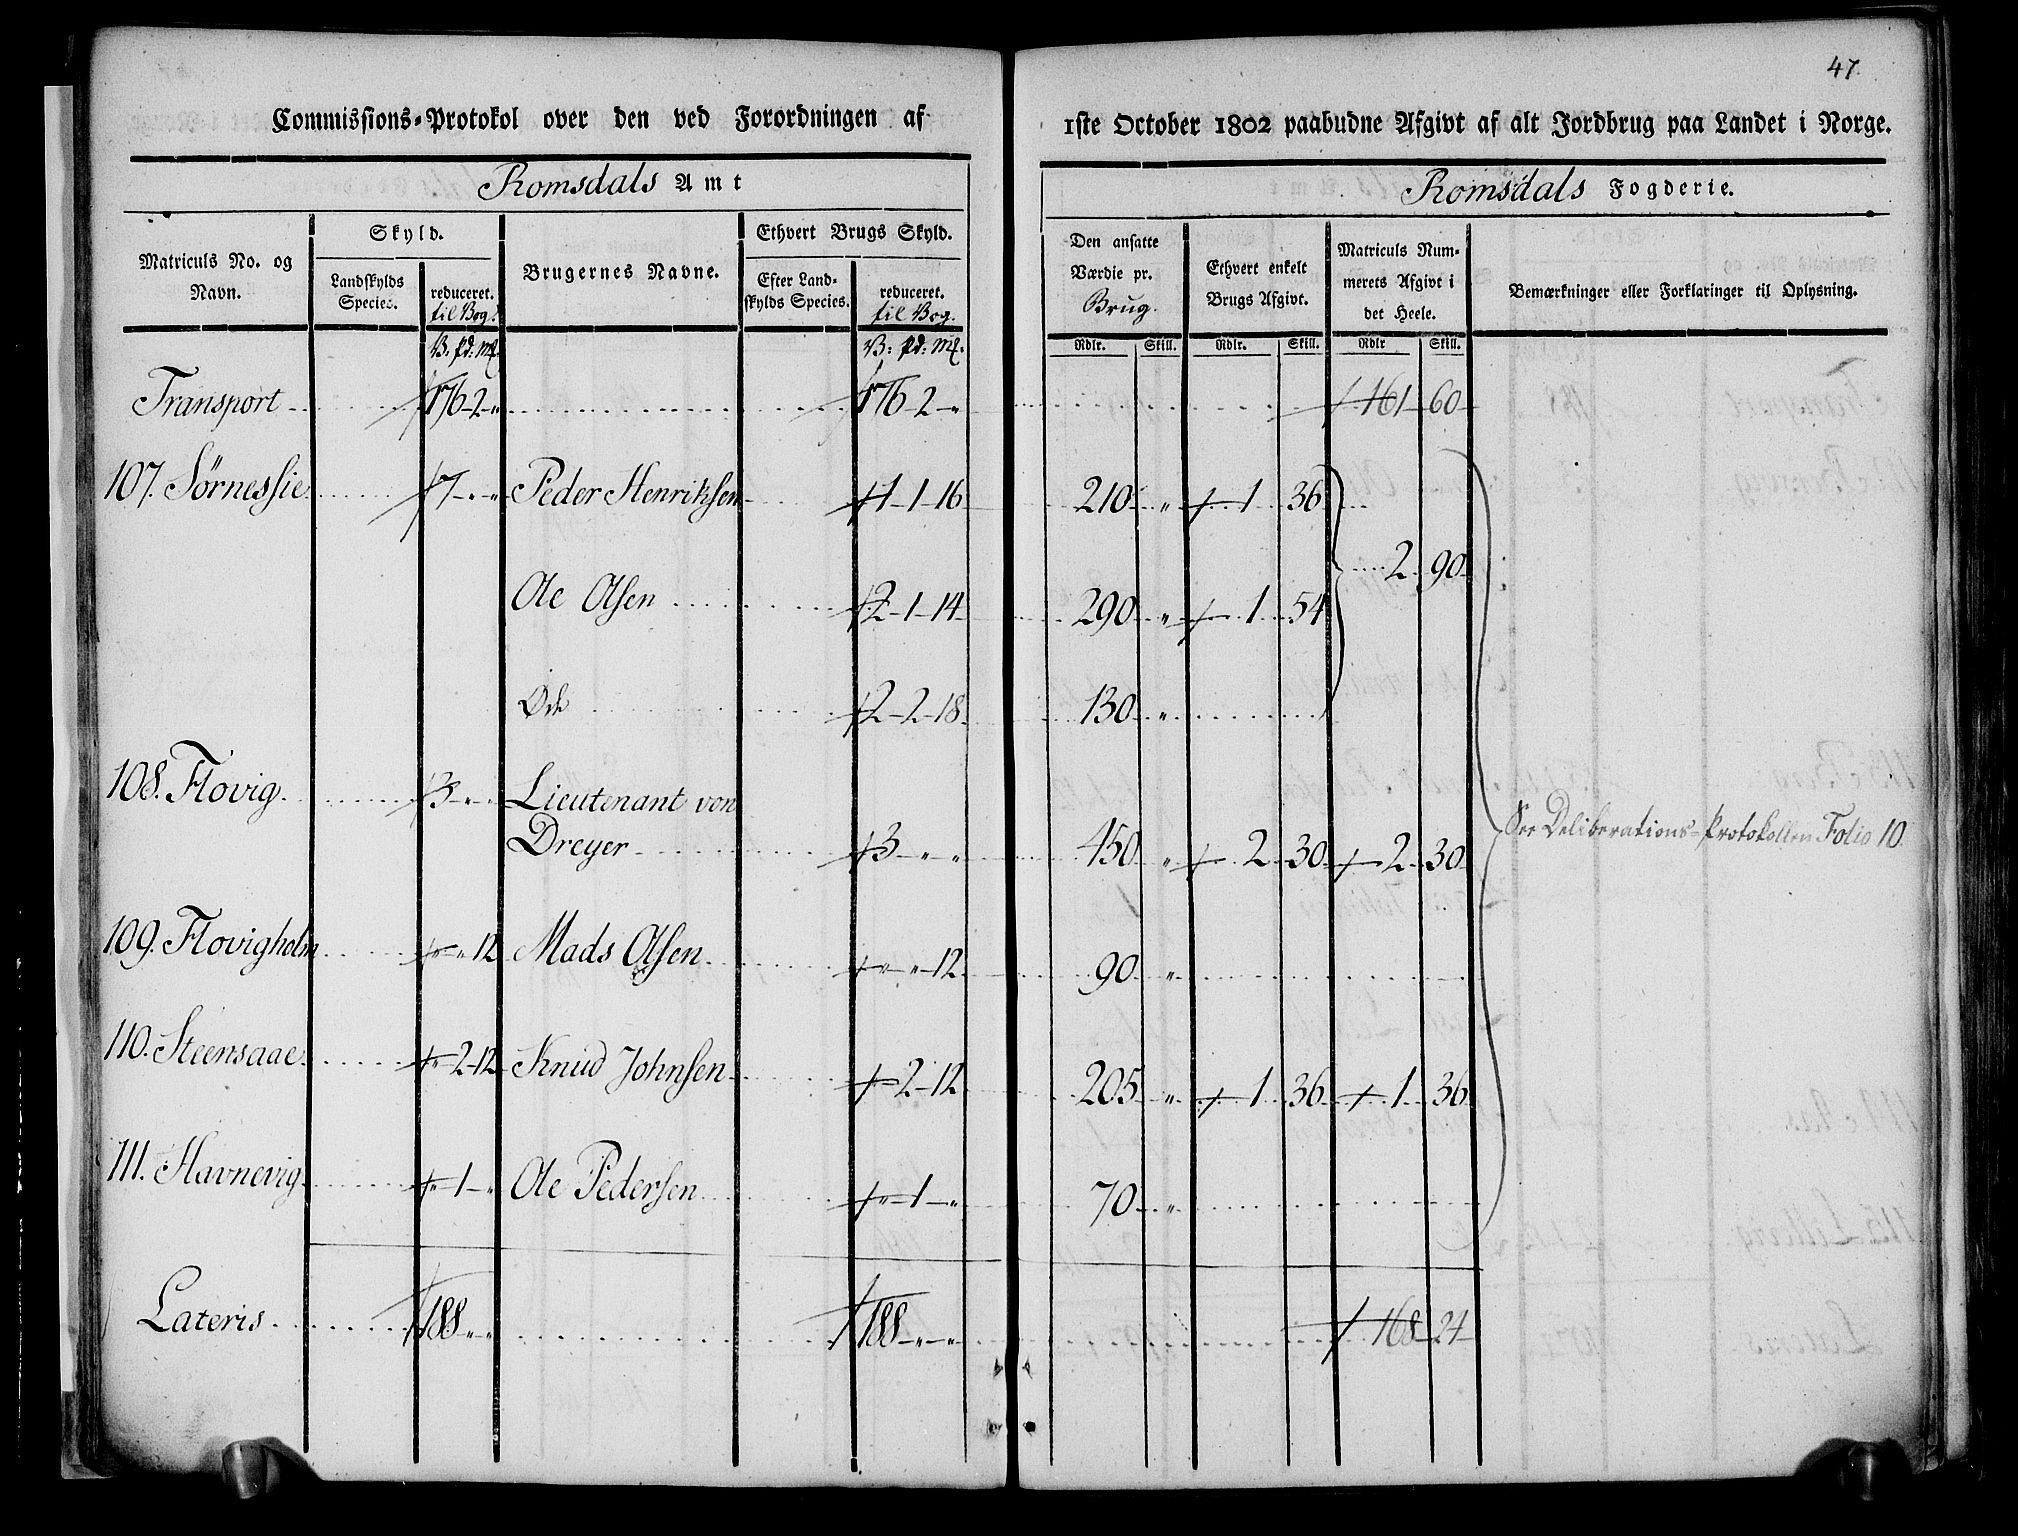 47.
Commissions-Protokol over den ved Forordningen af 1ste October 1802 paabudne Afgivt af alt Jordbrug paa Landet i Norge.
Romsdals Amt
Romsdals Fogderie.
Matriculs No. og Navn.
Skyld.
Landskylds Species.
reduceret. til Bog:
Brugernes Navne.
Ethvert Brugs Skyld.
Efter Landskylds Species.
reduceret. til Bog.
Den ansatte Værdie pr. Brug.
Ethvert enkelt Brugs Afgivt.
Matriculs Nummerets Afgivt i det Heele.
Bemærkninger eller Forklaringer til Oplysning.
V: pd: mk. V: pd: mk. Rdlr. Skill. Rdlr. Skill. Rdlr Skill.
Transport 176-2-" 176-2-" 161 60
107. Sørnessie 7-"-" Peder Henriksen 1-1-16 210 " 1 36
2 90
Ole Olsen 2-1-14 290 " 1 54
Øde 2-2-18 130 "
108. Flovig 3-"-" Lieutenant von
Dreyer 3-"-" 450 " 2 30 2 30
See Deliberations-Protokollen Folio 10.
109. Flovigholm "-"-12 Mads Olsen "-"-12 90 "
110. Steensaae "-2-12 Knud Johnsen "-2-12 205 " 1 36 1 36
111. Havnevig "-1-" Ole Pedersen "-1-" 70 "
Lateris 188-"-" 188-"-" 168 24